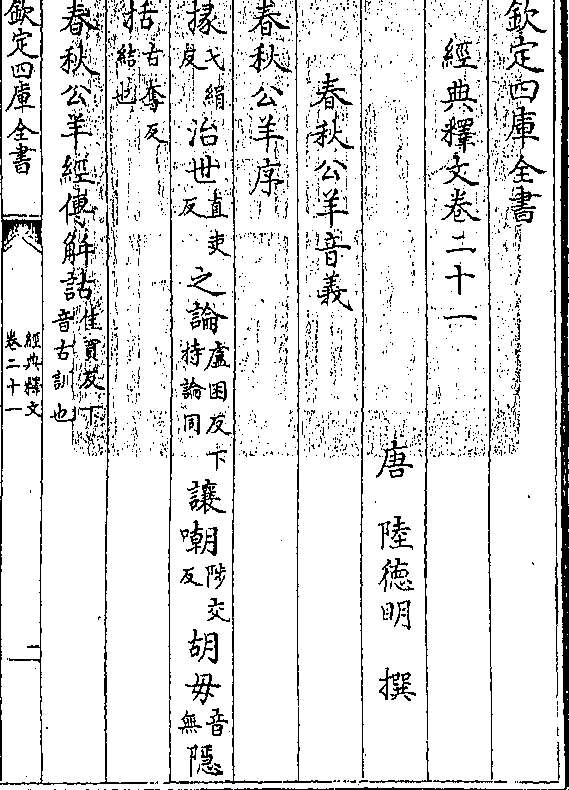 欽定四庫全書
經典釋文卷二十一
唐 陸德明 撰
春秋公羊音義
春秋公羊序
掾弋絹反治世直吏反之論盧困反下持論同讓嘲陟交反胡毋音無隱
括古奪反結也
春秋公羊經傳解詁佳買反下音古訓也
欽定四庫全書
經典釋文
卷二十一
二